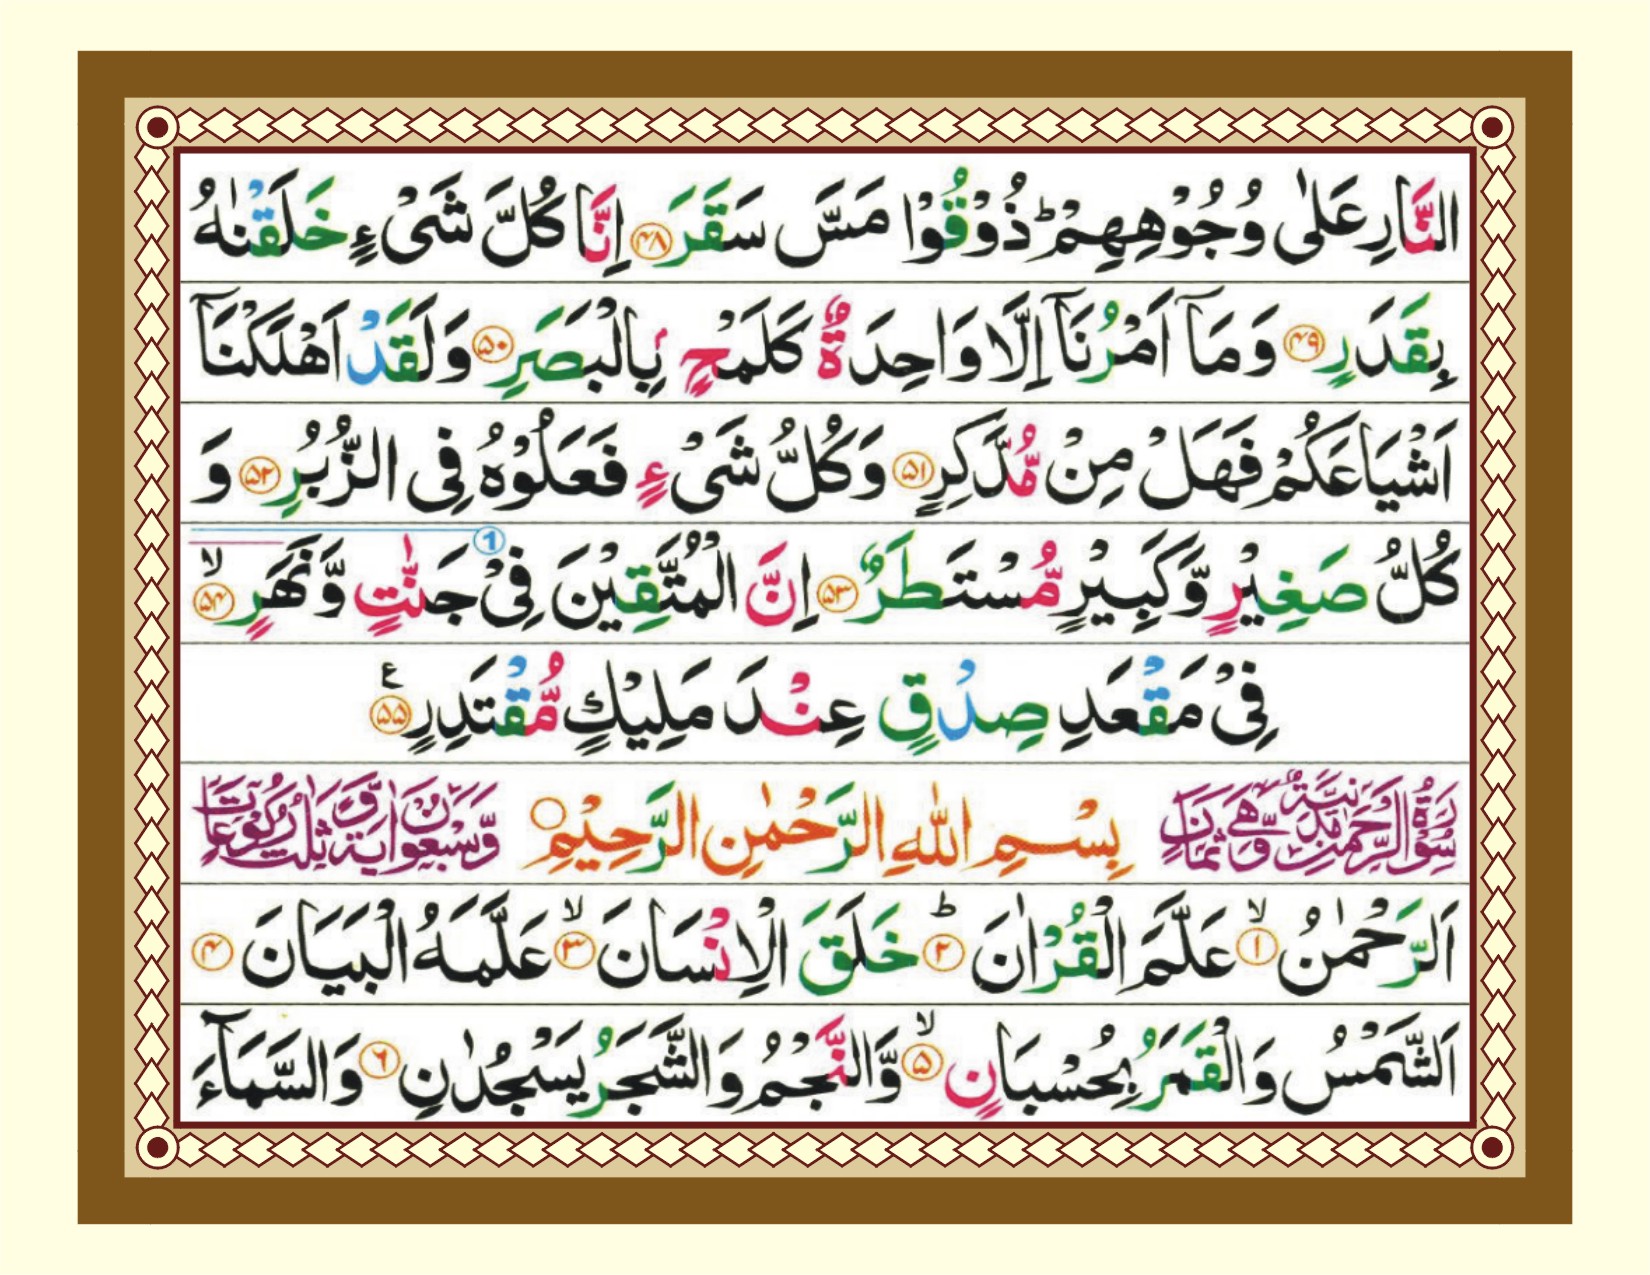 النَّارِ عَلٰى وُجُوْهِهِمْ ؕ ذُوْقُوْا مَسَّ سَقَرَ ﴿۴۸﴾ اِنَّا كُلَّ شَیْءٍ خَلَقْنٰهُ
بِقَدَرٍ ﴿۴۹﴾ وَ مَاۤ اَمْرُنَاۤ اِلَّا وَاحِدَةٌ كَلَمْحٍۭ بِالْبَصَرِ ﴿۵۰﴾ وَ لَقَدْ اَهْلَكْنَاۤ
اَشْيَاعَكُمْ فَهَلْ مِنْ مُّدَّكِرٍ ﴿۵۱﴾ وَ كُلُّ شَیْءٍ فَعَلُوْهُ فِی الزُّبُرِ ﴿۵۲﴾ وَ
كُلُّ صَغِيْرٍ وَّ كَبِيْرٍ مُّسْتَطَرٌ ﴿۵۳﴾ اِنَّ الْمُتَّقِيْنَ فِیْ جَنّٰتٍ وَّ نَهَرٍ ۙ ﴿۵۴﴾
فِیْ مَقْعَدِ صِدْقٍ عِنْدَ مَلِيْكٍ مُّقْتَدِرٍ ﴿۵۵﴾ ع
سُوْرَةُ الرَّحْمٰنِ مَدَنِيَّةٌ وَّهِیَ ثَمَانٍ بِسْمِ اللّٰهِ الرَّحْمٰنِ الرَّحِيْمِ وَّسَبْعُوْنَ اٰيَةً وَّثَلٰثُ رُكُوْعَاتٍ
اَلرَّحْمٰنُ ۙ ﴿۱﴾ عَلَّمَ الْقُرْاٰنَ ؕ ﴿۲﴾ خَلَقَ الْاِنْسَانَ ۙ ﴿۳﴾ عَلَّمَهُ الْبَيَانَ ﴿۴﴾
اَلشَّمْسُ وَ الْقَمَرُ بِحُسْبَانٍ ۙ ﴿۵﴾ وَّ النَّجْمُ وَ الشَّجَرُ يَسْجُدٰنِ ﴿۶﴾ وَ السَّمَآءَ